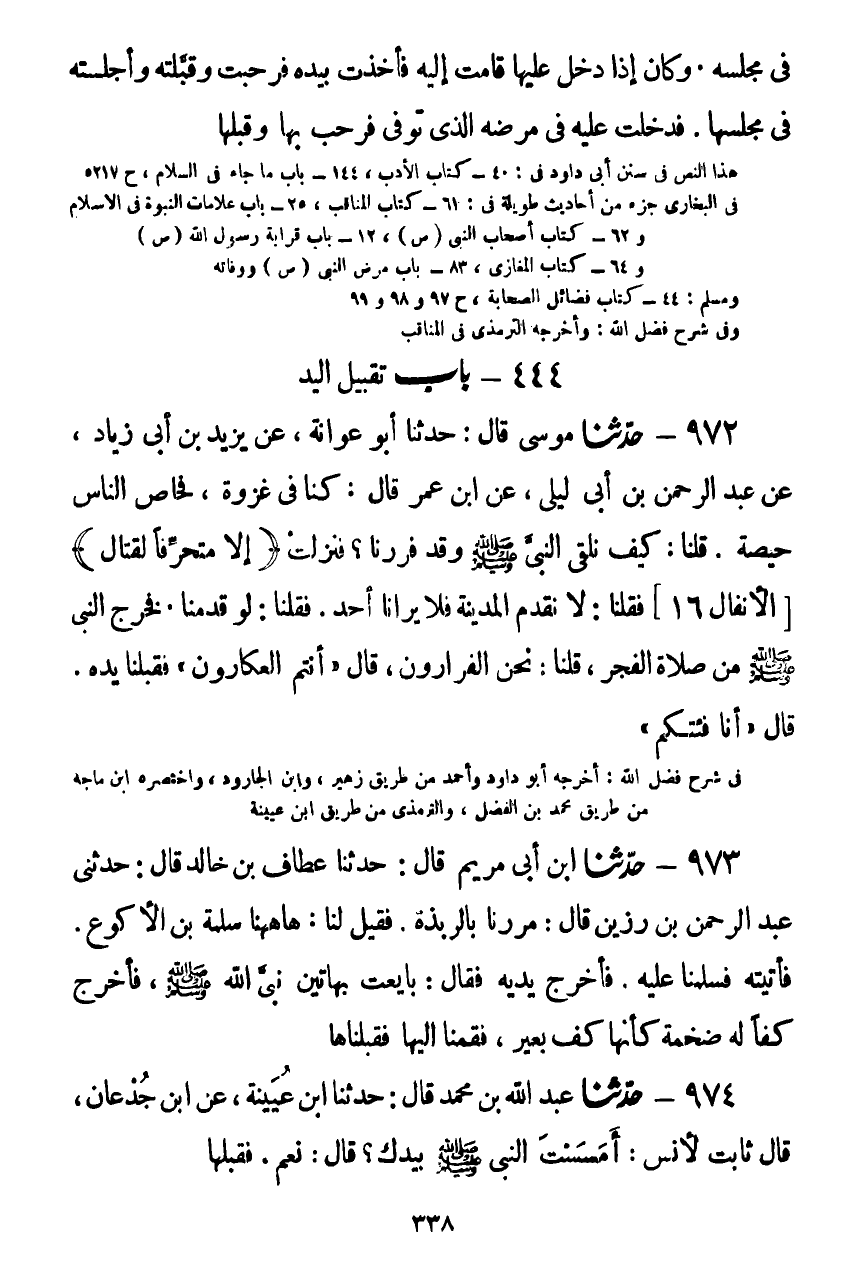 فى مجلسه . وكان إذا دخل عليها قامت إليه فأخذت بيده فرحبت وقبَّلته وأجلسته
فى مجلسها . فدخلت عليه فى مرضه الذى تّوفى فرحب بها وقبلها
هذا النص فى سنن أبى داود فى : ٤٠ – كتاب الأدب ، ١٤٤ – باب ما جاء فى السلام ، ح ٥٢١٧
فى البخارى جزء من أحاديث طويلة فى : ٦١ – كتاب المناقب ، ٢٥ – باب علامات النبوة فى الاسلام
و ٦٢ – كتاب أصحاب النبى ( ص ) ، ١٢ – باب قرابة رسول الله ( ص )
و ٦٤ – كتاب المغازى ، ٨٣ – باب مرض النبى ( ص ) ووفاته
ومسلم : ٤٤ – كتاب فضائل الصحابة ، ح ٩٧ و ٩٨ و ٩٩
وفى شرح فضل الله : وأخرجه الترمذى فى المناقب
٤٤٤ – باب تقبيل اليد
٩٧٢ – حدّثنا موسى قال : حدثنا أبو عوانة ، عن يزيد بن أبى زياد ،
عن عبد الرحمن بن أبى ليلى ، عن ابن عمر قال : كنا فى غزوة ، فحاص الناس
حيصة . قلنا : كيف نلقى النبىَّ ﷺ وقد فررنا ؟ فنزلتْ ﴿ إلا متحرِّفاً لقتال ﴾
[ الأنفال ١٦ ] فقلنا : لا نقدم المدينة فلا يرانا أحد . فقلنا : لو قدمنا . فخرج النبى
ﷺ من صلاة الفجر ، قلنا : نحن الفرارون ، قال « أنتم العكارون » فقبلنا يده .
قال « أنا فئتكم »
فى شرح فضل الله : أخرجه أبو داود وأحمد من طريق زهير ، وابن الجارود ، واختصره ابن ماجه
من طريق محمد بن الفضل ، والترمذى من طريق ابن عيينة
٩٧٣ – حدّثنا ابن أبى مريم قال : حدثنا عطاف بن خالد قال : حدثنى
عبد الرحمن بن رزين قال : مررنا بالربذة . فقيل لنا : هاهنا سلمة بن الأكوع .
فأتيته فسلمنا عليه . فأخرج يديه فقال : بايعت بهاتين نبىَّ الله ﷺ ، فأخرج
كفاً له ضخمة كأنها كف بعير ، فقمنا اليها فقبلناها
٩٧٤ – حدّثنا عبد الله بن محمد قال : حدثنا ابن عُيَينة ، عن ابن جُدْعان ،
قال ثابت لأنس : أَمَسَسْتَ النبى ﷺ بيدك ؟ قال : نعم . فقبلها
٣٣٨